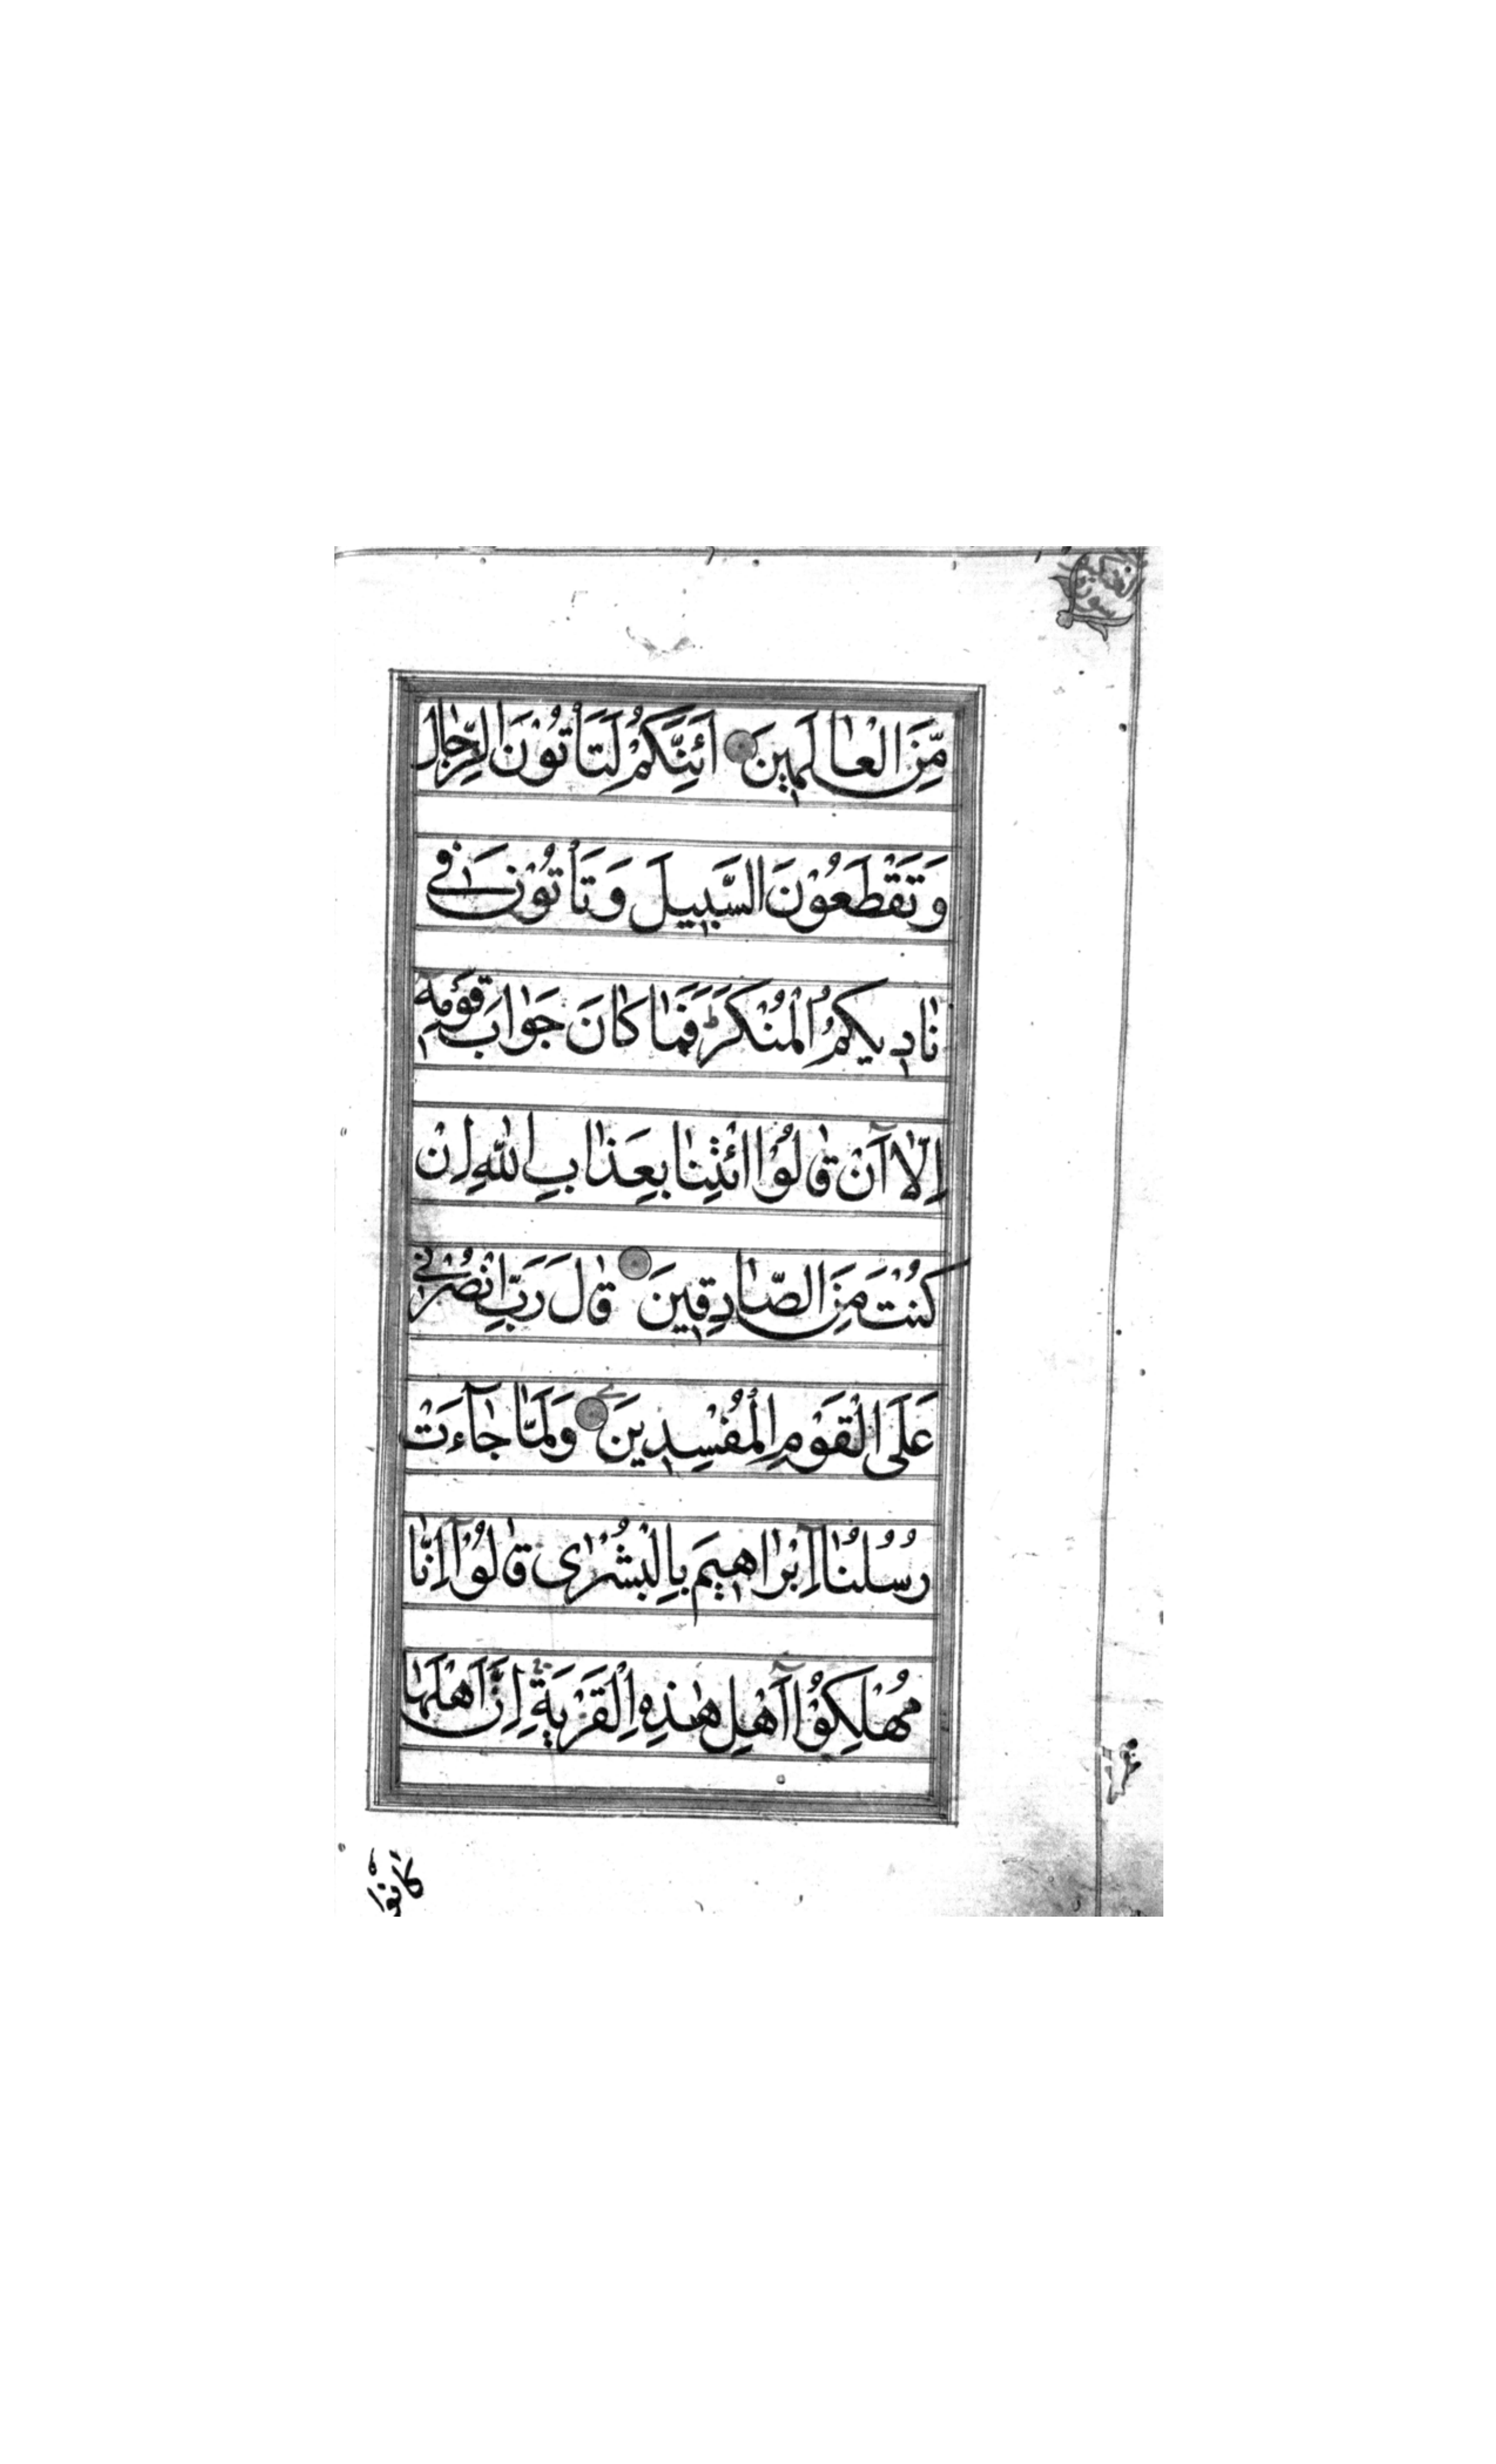 مِّنَ الْعَالَمِينَ اَئِنَّكُمْ لَتَأْتُوْنَ الرِّجَالَ
وَتَقْطَعُوْنَ السَّبِيلَ وَتَأْتُوْنَ فِي
نَادِيكُمُ الْمُنْكَرَ ط فَمَا كَانَ جَوَابَ قَوْمِهِ
اِلَّا آنْ قَالُوْا ائْتِنَا بِعَذَابِ اللهِ اِنْ
كُنْتَ مِنَ الصَّادِقِينَ قَالَ رَبِّ انْصُرْنِي
عَلَى الْقَوْمِ الْمُفْسِدِينَ وَلَمَّا جَآءَتْ
رُسُلُنَا اِبْرَاهِيمَ بِالْبُشْرَى قَالُوْآ اِنَّا
مُهْلِكُوْا آهْلِ هَذِهِ الْقَرْيَةِ اِنَّ اَهْلَهَا
كانوا